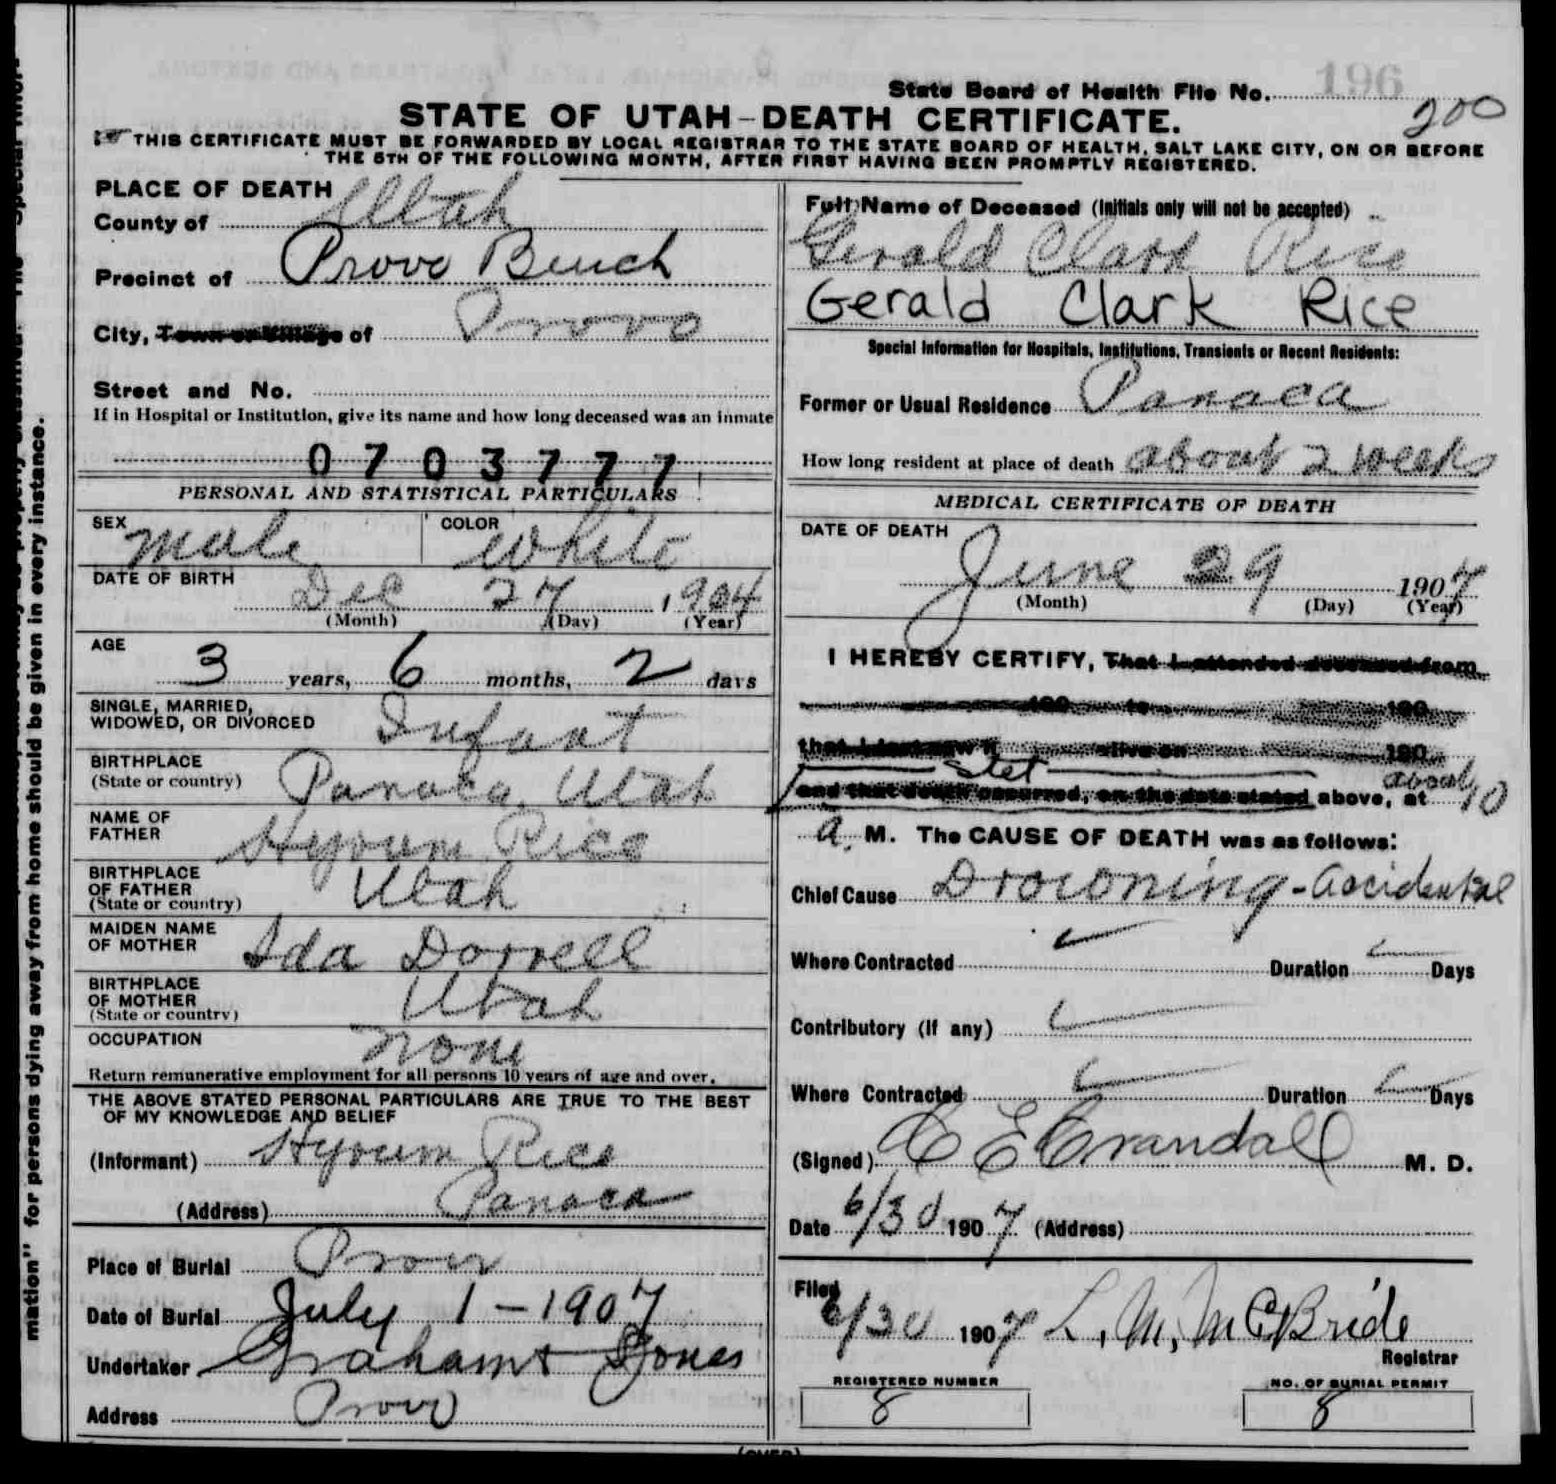 196
State Board of Health File No.
200
STATE OF UTAH-DEATH CERTIFICATE.
THIS CERTIFICATE MUST BE FORWARDED BY LOCAL REGISTRAR TO THE STATE BOARD OF HEALTH, SALT LAKE CITY, ON OR BEFORE
THE 5TH OF THE FOLLOWING MONTH, AFTER FIRST HAVING BEEN PROMPTLY REGISTERED.
PLACE OF DEATH
County of Utah
Precinct of Provo Bench
City, Town or Village of Provo
Street and No.
If in Hospital or Institution, give its name and how long deceased was an inmate
0703777
PERSONAL AND STATISTICAL PARTICULARS
SEX Male COLOR White
DATE OF BIRTH Dec 27, 1904
(Month) (Day) (Year)
AGE 3 years, 6 months, 2 days
SINGLE, MARRIED,
WIDOWED, OR DIVORCED Infant
BIRTHPLACE
(State or country) Panaca, Utah
NAME OF
FATHER Hyrum Rice
BIRTHPLACE
OF FATHER
(State or country) Utah
MAIDEN NAME
OF MOTHER Ida Dorrell
BIRTHPLACE
OF MOTHER
(State or country) Utah
OCCUPATION None
Return remunerative employment for all persons 10 years of age and over.
THE ABOVE STATED PERSONAL PARTICULARS ARE TRUE TO THE BEST
OF MY KNOWLEDGE AND BELIEF
(Informant) Hyrum Rice
(Address) Panaca
Place of Burial Provo
Date of Burial July 1-1907
Undertaker Graham & Jones
Address Provo
Full Name of Deceased (Initials only will not be accepted)
Gerald Clark Rice
Gerald Clark Rice
Special Information for Hospitals, Institutions, Transients or Recent Residents:
Former or Usual Residence Panaca
How long resident at place of death about 2 weeks
MEDICAL CERTIFICATE OF DEATH
DATE OF DEATH
June 29 1907
(Month) (Day) (Year)
I HEREBY CERTIFY, That I attended deceased from
190 to 190
that I last saw h alive on 190
stet
and that death occurred, on the date stated above, at about 10
a. M. The CAUSE OF DEATH was as follows:
Chief Cause Drowning-accidental
Where Contracted Duration Days
Contributory (If any)
Where Contracted Duration Days
(Signed) C E Crandall M. D.
Date 6/30 1907 (Address)
Filed
6/30 1907 L. M. McBride
Registrar
REGISTERED NUMBER NO. OF BURIAL PERMIT
8 8
(OVER)
mation" for persons dying away from home should be given in every instance.